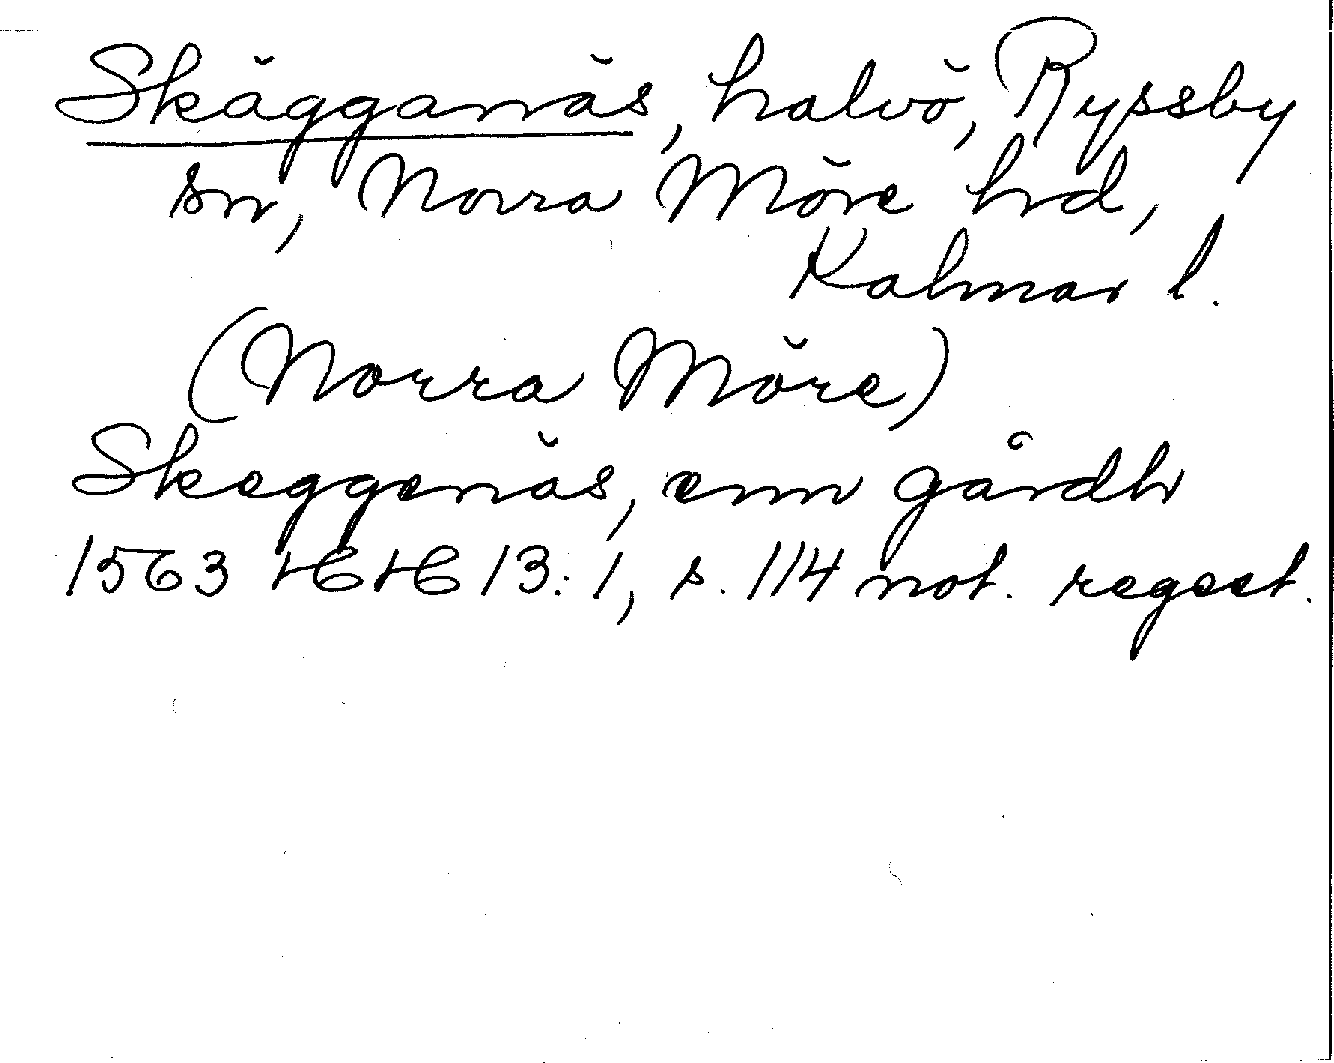 Skägganäs, halvö, Ryssby
sn, Norra Möre hd,
Kalmar l.
(Norra Möre)
Skeggenäs, enn gårdh
1563 HH 13:1, s. 114 not. regest.